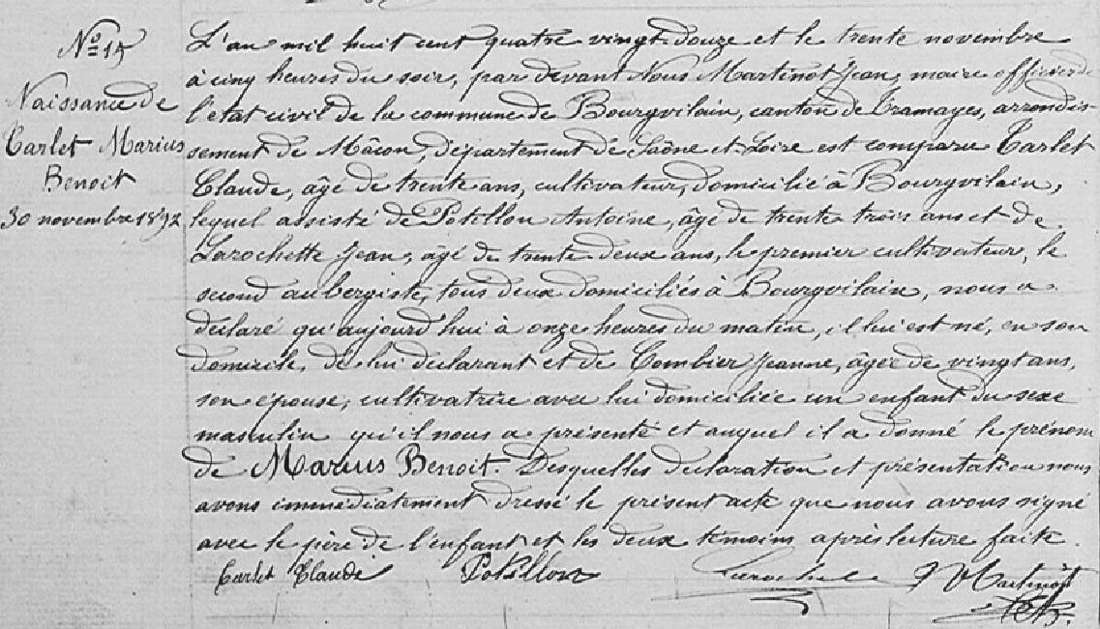 No 14
Naissance de
Carlet Marius
Benoit
30 novembre 1892
L'an mil huit cent quatre vingt douze et le trente novembre
à cinq heures du soir, par devant Nous Martinot Jean, maire officier de
l'état civil de la commune de Bourgvilain, canton de Tramayes, arrondis-
sement de Mâcon, département de Saône et Loire est comparu Carlet
Claude, âgé de trente ans, cultivateur, domicilié à Bourgvilain,
lequel assisté de Potillon Antoine, âgé de trente trois ans et de
Larochette Jean, âgé de trente deux ans, le premier cultivateur, le
second aubergiste, tous deux domiciliés à Bourgvilain, nous a
déclaré qu'aujourd'hui à onze heures du matin, il lui est né, en son
domicile, de lui déclarant et de Combier Jeanne, âgée de vingt ans,
son épouse, cultivatrice avec lui domiciliée un enfant du sexe
masculin qu'il nous a présenté et auquel il a donné le prénom
de Marius Benoit. Desquelles déclaration et présentation nous
avons immédiatement dressé le présent acte que nous avons signé
avec le père de l'enfant et les deux témoins après lecture faite.
Carlet Claude Potillon Larochette J Martinot